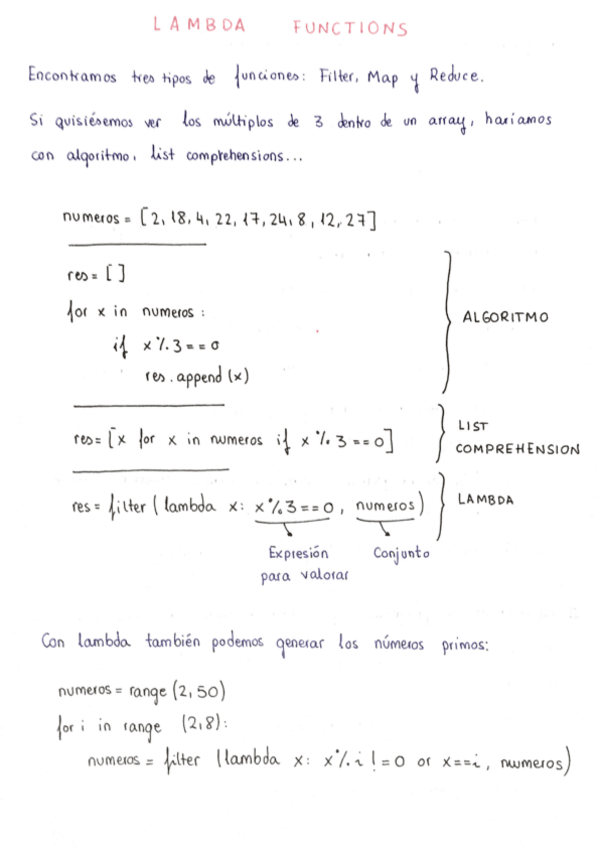 LAMBDA FUNCTIONS
Encontramos tres tipos de funciones: Filter, Map y Reduce.
Si quisiésemos ver los múltiplos de 3 dentro de un array, haríamos
con algoritmo, list comprehensions...
numeros = [2, 18, 4, 22, 17, 24, 8, 12, 27]
res = []
for x in numeros:
if x % 3 == 0
res.append(x)
ALGORITMO
res = [x for x in numeros if x % 3 == 0]
LIST
COMPREHENSION
res = filter (lambda x: x % 3 == 0, numeros)
LAMBDA
Expresión
para valorar
Conjunto
Con lambda también podemos generar los números primos:
numeros = range (2, 50)
for i in range (2,8):
numeros = filter (lambda x: x % i != 0 or x == i, numeros)